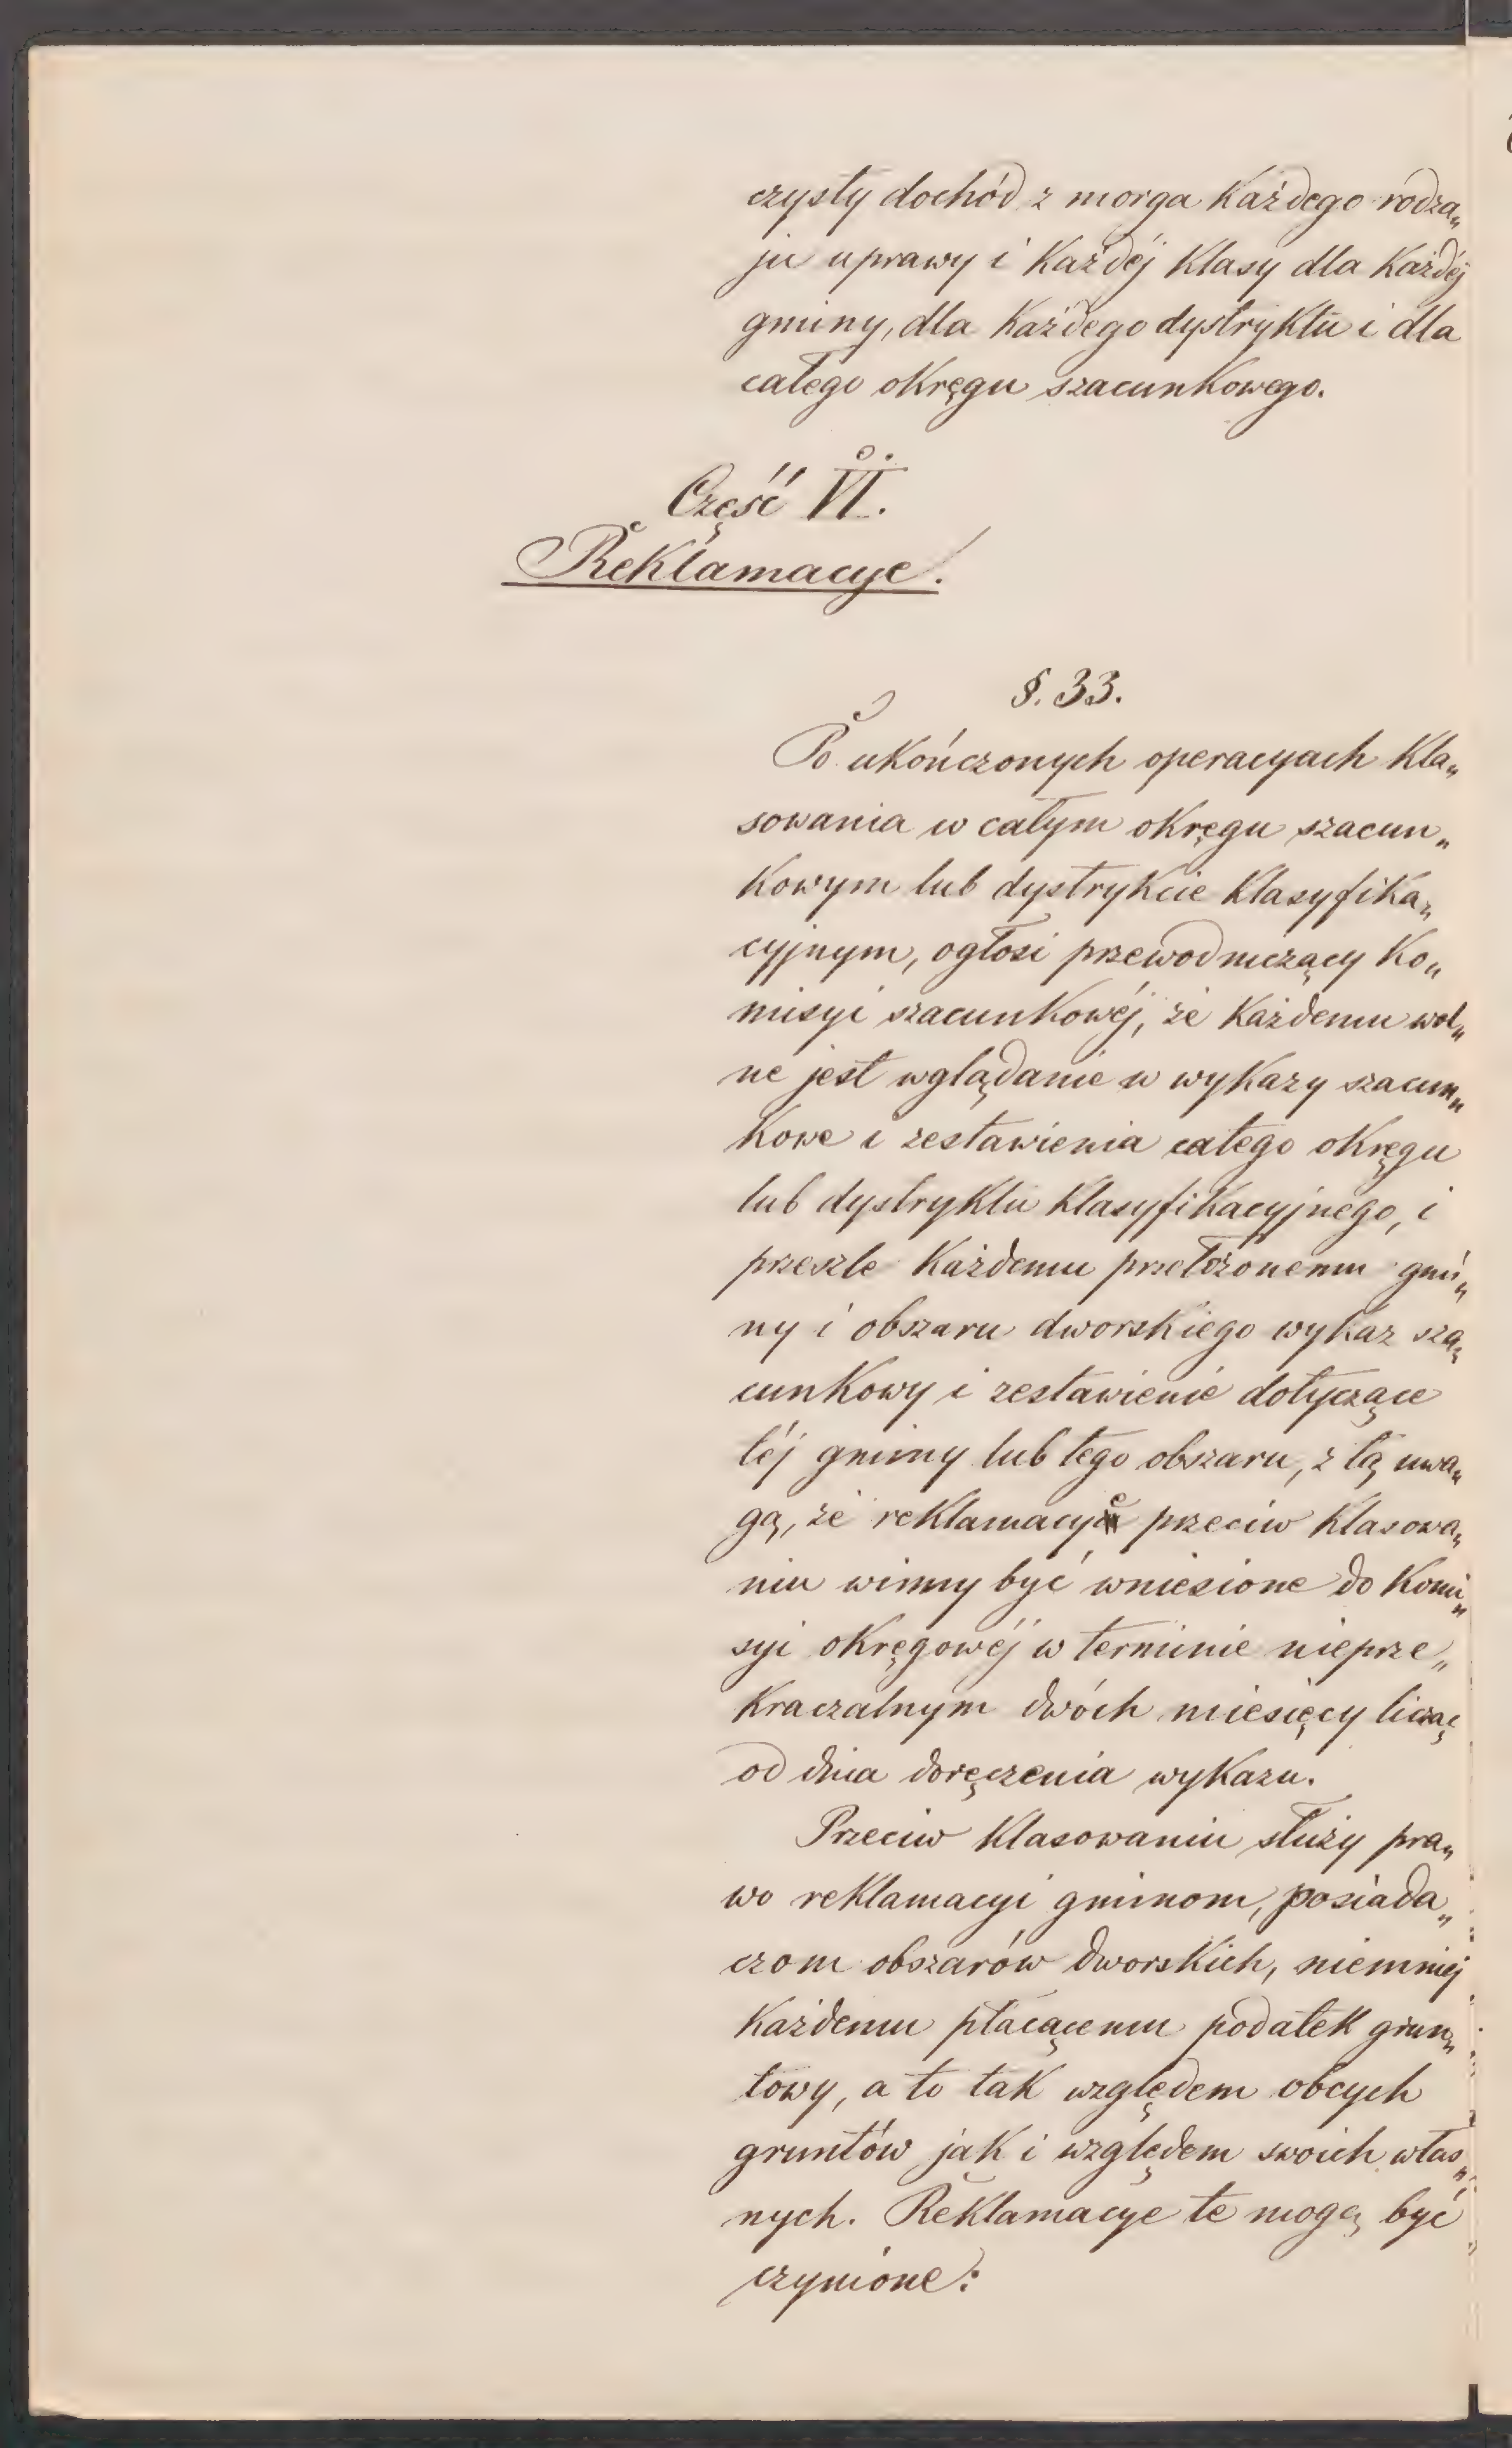 czysty dochód z morga każdego rodza„
ju uprawy i każdéj klasy dla każdéj
gminy, dla każdego dystryktu i dla
całego okręgu szacunkowego.
Część VI.
Reklamacye.
§. 33.
Po ukończonych operacyach kla„
sowania w całym okręgu szacun„
kowym lub dystrykcie klasyfika„
cyjnym, ogłosi przewodniczący ko„
misyi szacunkowéj, że każdemu wol„
ne jest wglądanie w wykazy szacun„
kowe i zestawienia całego okręgu
lub dystryktu klasyfikacyjnego, i
przeszle każdemu przełożonemu gmi„
ny i obszaru dworskiego wykaz sza„
cunkowy i zestawienie dotyczące
téj gminy lub tego obszaru, z tą uwa„
gą, że reklamacye przeciw klasowa„
niu winny być wniesione do komi„
syi okręgowéj w terminie nieprze„
kraczalnym dwóch miesięcy licząc
od dnia doręczenia wykazu.
Przeciw klasowaniu służy pra„
wo reklamacyi gminom, posiada„
czom obszarów dworskich, niemniéj
każdemu płacącemu podatek grun„
towy, a to tak względem obcych
gruntów jak i względem swoich włas„
nych. Reklamacye te mogą być
czynione: